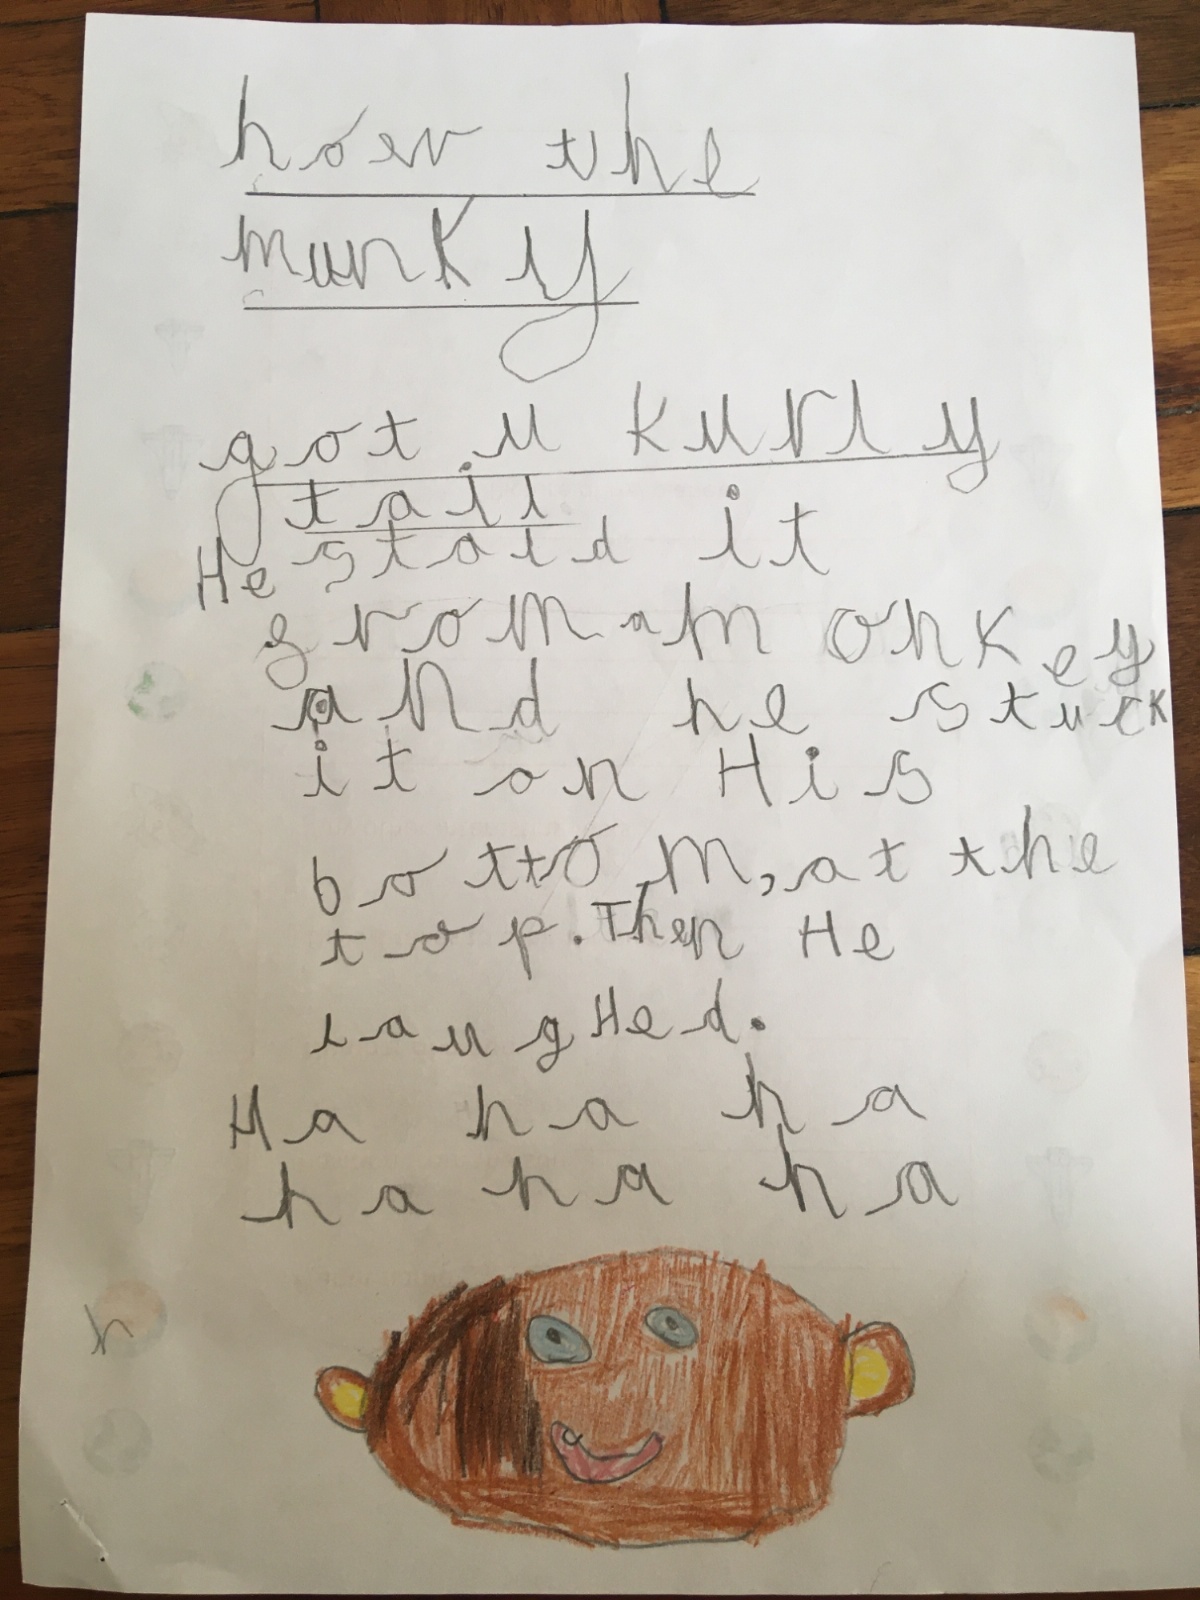 how the
munky
got u kurly
tail
He stold it
from a monkey
and he stuck
it on His
bottom, at the
top. Then He
laugHed.
Ha ha ha
ha ha ha
h